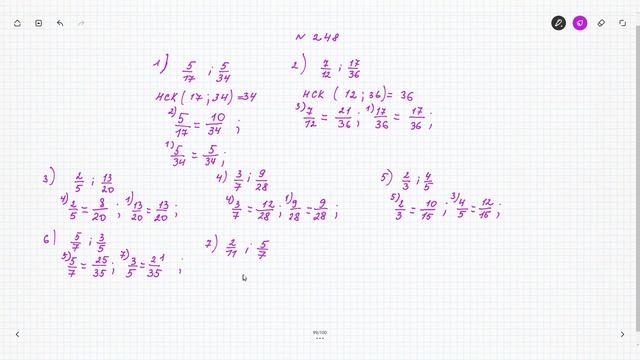 N 248
1) 5/17 ; 5/34
НСК (17 ; 34) = 34
2) 5/17 = 10/34 ;
1) 5/34 = 5/34 ;
2) 7/12 ; 17/36
НСК ( 12 ; 36) = 36
3) 7/12 = 21/36 ; 1) 17/36 = 17/36 ;
3) 2/5 ; 13/20
4) 2/5 = 8/20 ; 1) 13/20 = 13/20 ;
4) 3/7 ; 9/28
4) 3/7 = 12/28 ; 1) 9/28 = 9/28 ;
5) 2/3 ; 4/5
5) 2/3 = 10/15 ; 3) 4/5 = 12/15 ;
6) 5/7 ; 3/5
5) 5/7 = 25/35 ; 7) 3/5 = 21/35 ;
7) 2/11 ; 5/7
99/100